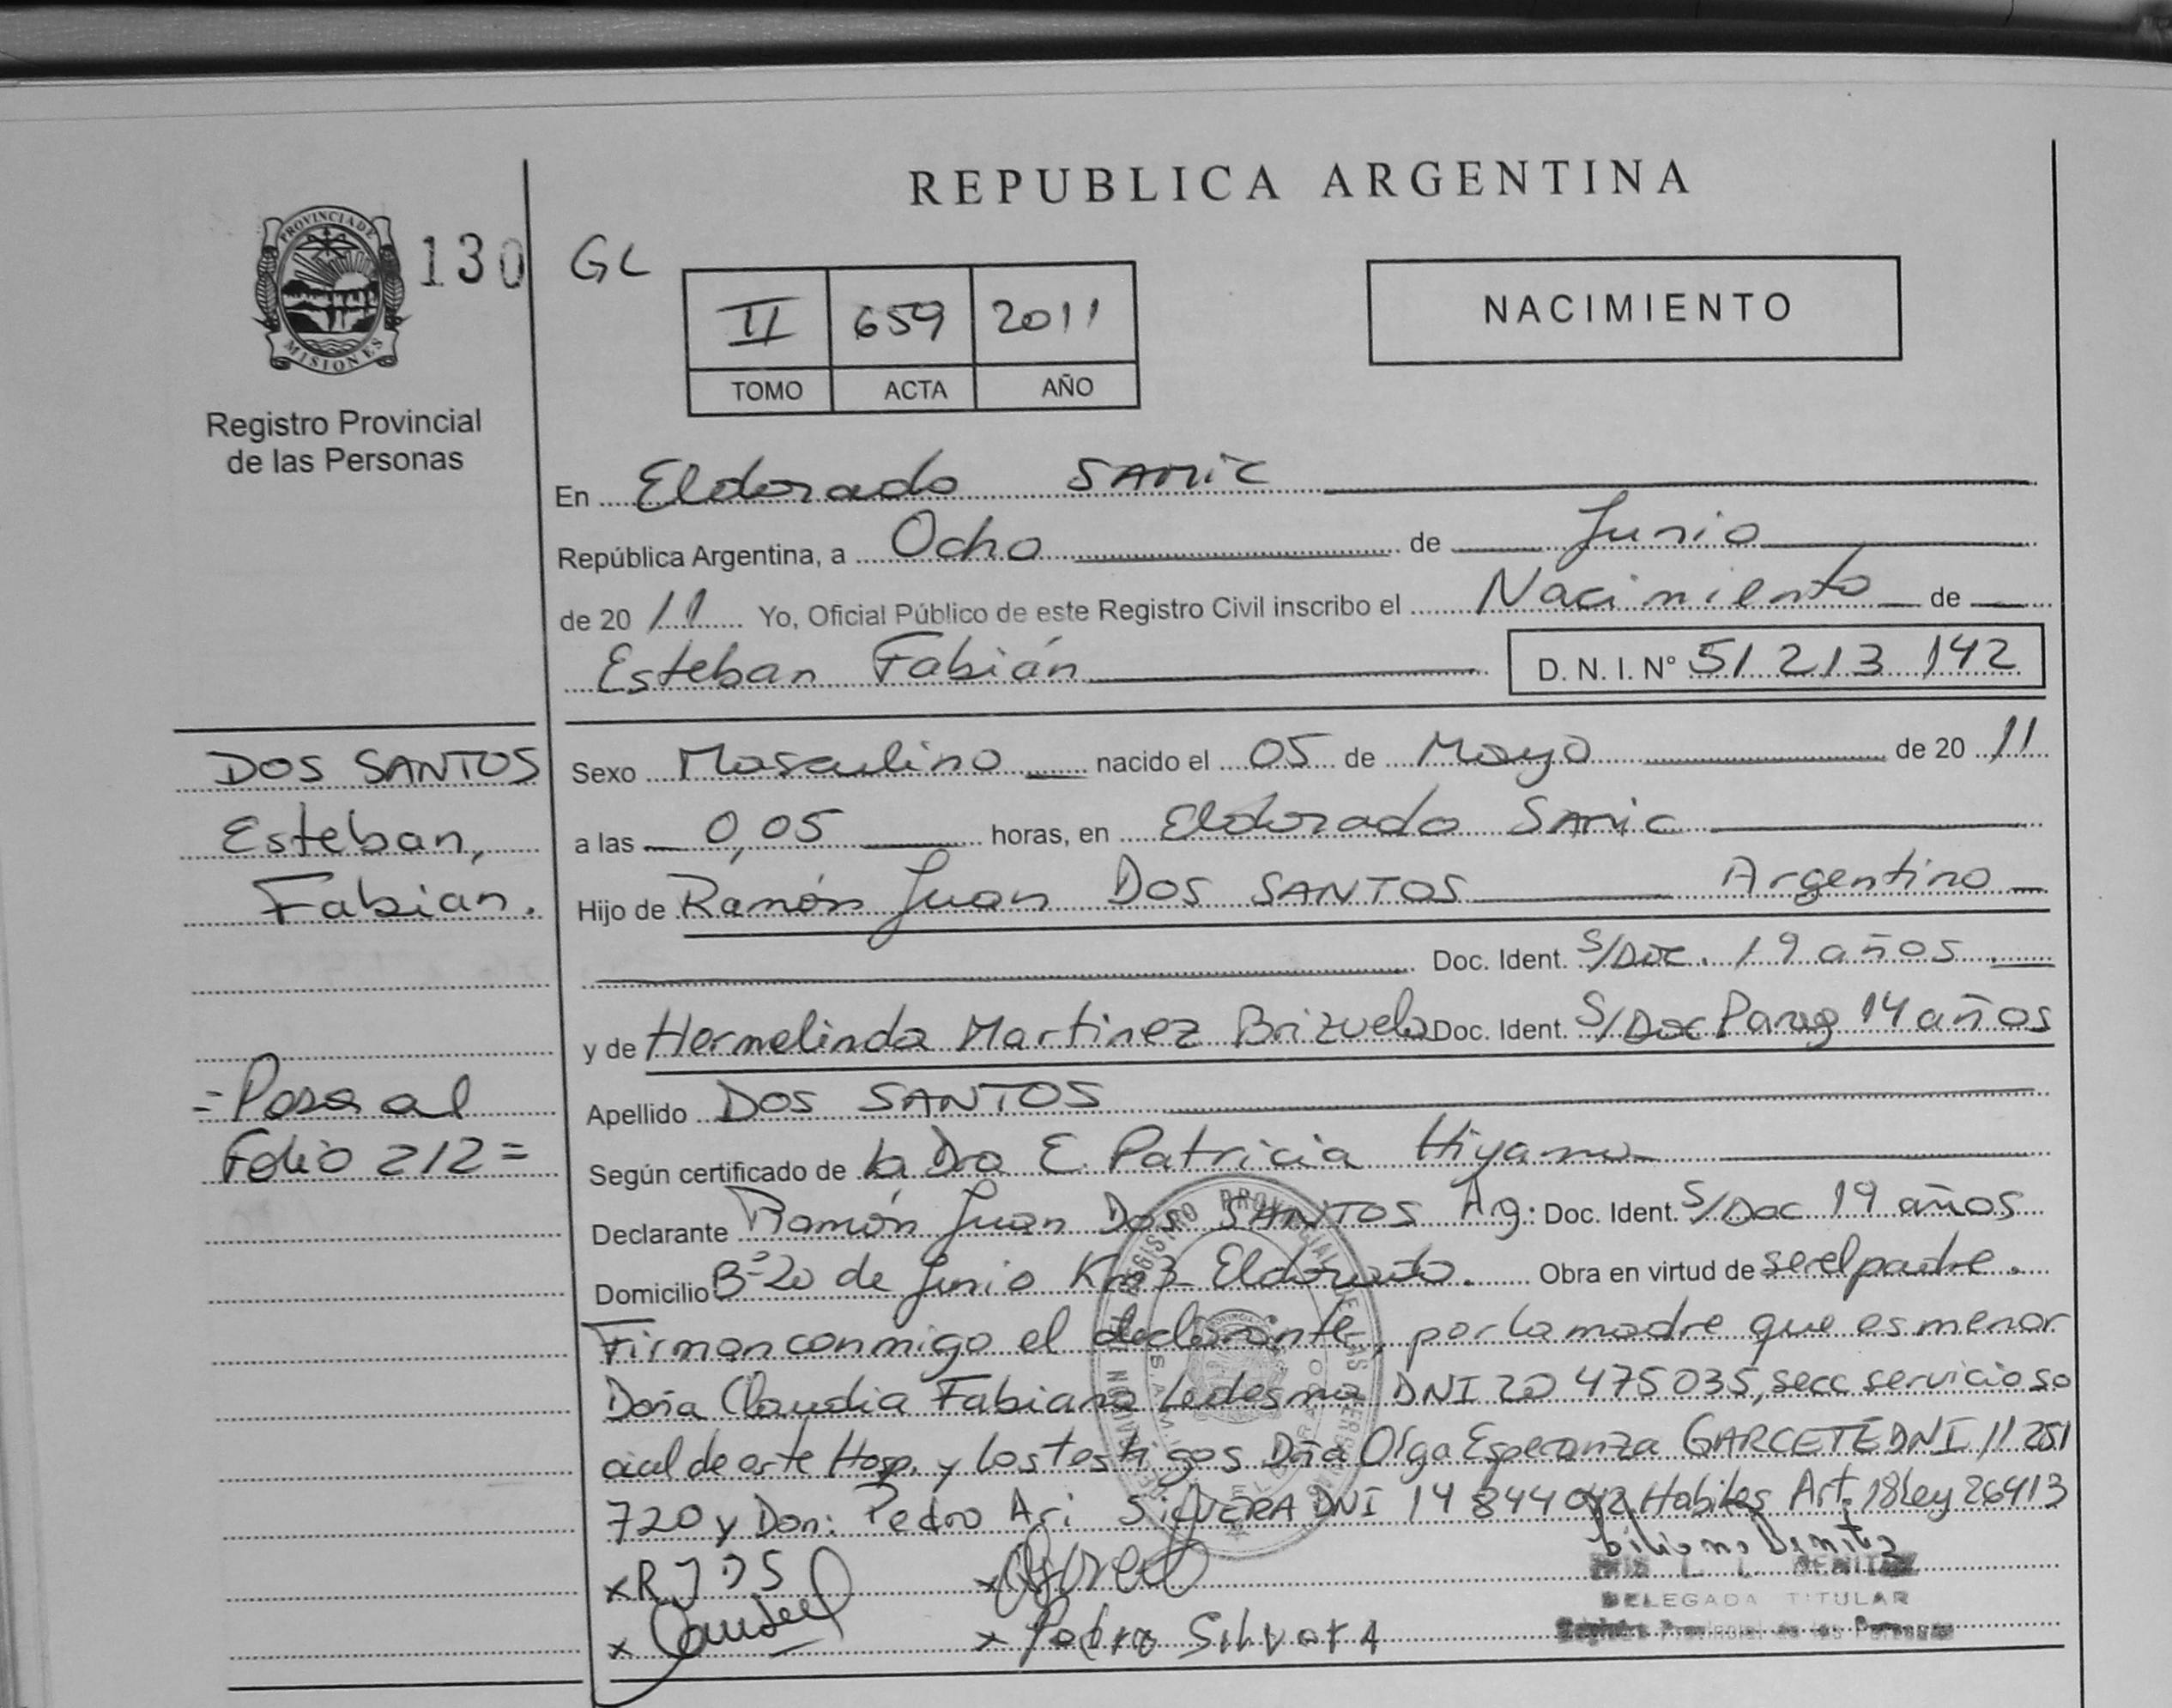 REPUBLICA ARGENTINA
PROVINCIA DE
MISIONES
130
GL
II 659 2011
TOMO ACTA AÑO
NACIMIENTO
Registro Provincial
de las Personas
En Eldorado SAMIC
República Argentina, a Ocho de Junio
de 20 11 Yo, Oficial Público de este Registro Civil inscribo el Nacimiento de
Esteban Fabián D. N. I. Nº 51 213 142
DOS SANTOS
Esteban,
Fabian.
=Pasa al
Folio 212=
Sexo Masculino nacido el 05 de Mayo de 20 11
a las 0,05 horas, en Eldorado Samic
Hijo de Ramón Juan DOS SANTOS Argentino
Doc. Ident. S/Doc. 19 años
y de Hermelinda Martinez Brizuela Doc. Ident. S/Doc Parag 14 años
Apellido DOS SANTOS
Según certificado de la Dra E. Patricia
Declarante Ramón Juan Dos SANTOS Ag: Doc. Ident. S/Doc 19 años
Domicilio Bº 20 de Junio Km3 Eldorado. Obra en virtud de ser el padre.
Firman conmigo el declarante, por la madre que es menor
Doña Claudia Fabiana Ledesma DNI 20 475035, secc servicio so
cial de este Hosp. y los testigos Dña Olga Esperanza GARCETE DNI 11 251
720 y Don: Pedro Ari SILVERA DNI 14 844 042 Habiles Art. 18 Ley 26413
x R J D S
x
x
x Pedro Silvera
BENITEZ
DELEGADA TITULAR
Registro Provincial de las Personas